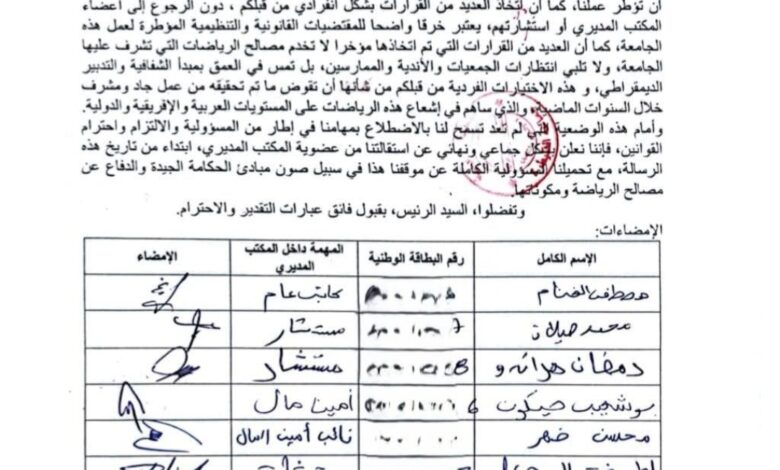 أن تؤطر عملنا، كما أن اتخاذ العديد من القرارات بشكل انفرادي من قبلكم ، دون الرجوع إلى أعضاء
المكتب المديري أو استشارتهم، يعتبر خرقا واضحا للمقتضيات القانونية والتنظيمية المؤطرة لعمل هذه
الجامعة، كما أن العديد من القرارات التي تم اتخاذها مؤخرا لا تخدم مصالح الرياضات التي تشرف عليها
الجامعة، ولا تلبي انتظارات الجمعيات والأندية والممارسين، بل تمس في العمق بمبدأ الشفافية والتدبير
الديمقراطي، و هذه الاختيارات الفردية من قبلكم من شأنها أن تقوض ما تم تحقيقه من عمل جاد ومشرف
خلال السنوات الماضية، والذي ساهم في إشعاع هذه الرياضات على المستويات العربية والإفريقية والدولية.
وأمام هذه الوضعية التي لم تعد تسمح لنا بالاضطلاع بمهامنا في إطار من المسؤولية والالتزام واحترام
القوانين، فإننا نعلن بشكل جماعي ونهائي عن استقالتنا من عضوية المكتب المديري، ابتداء من تاريخ هذه
الرسالة، مع تحميلنا المسؤولية الكاملة عن موقفنا هذا في سبيل صون مبادئ الحكامة الجيدة والدفاع عن
مصالح الرياضة ومكوناتها.
وتفضلوا، السيد الرئيس، بقبول فائق عبارات التقدير والاحترام.
الإمضاءات:
الإسم الكامل رقم البطاقة الوطنية المهمة داخل المكتب المديري الإمضاء
مصطفى كاتب عام
محمد 7 مستشار
8 مستشار
بوشعيب 6 أمين مال
محسن نائب أمين المال